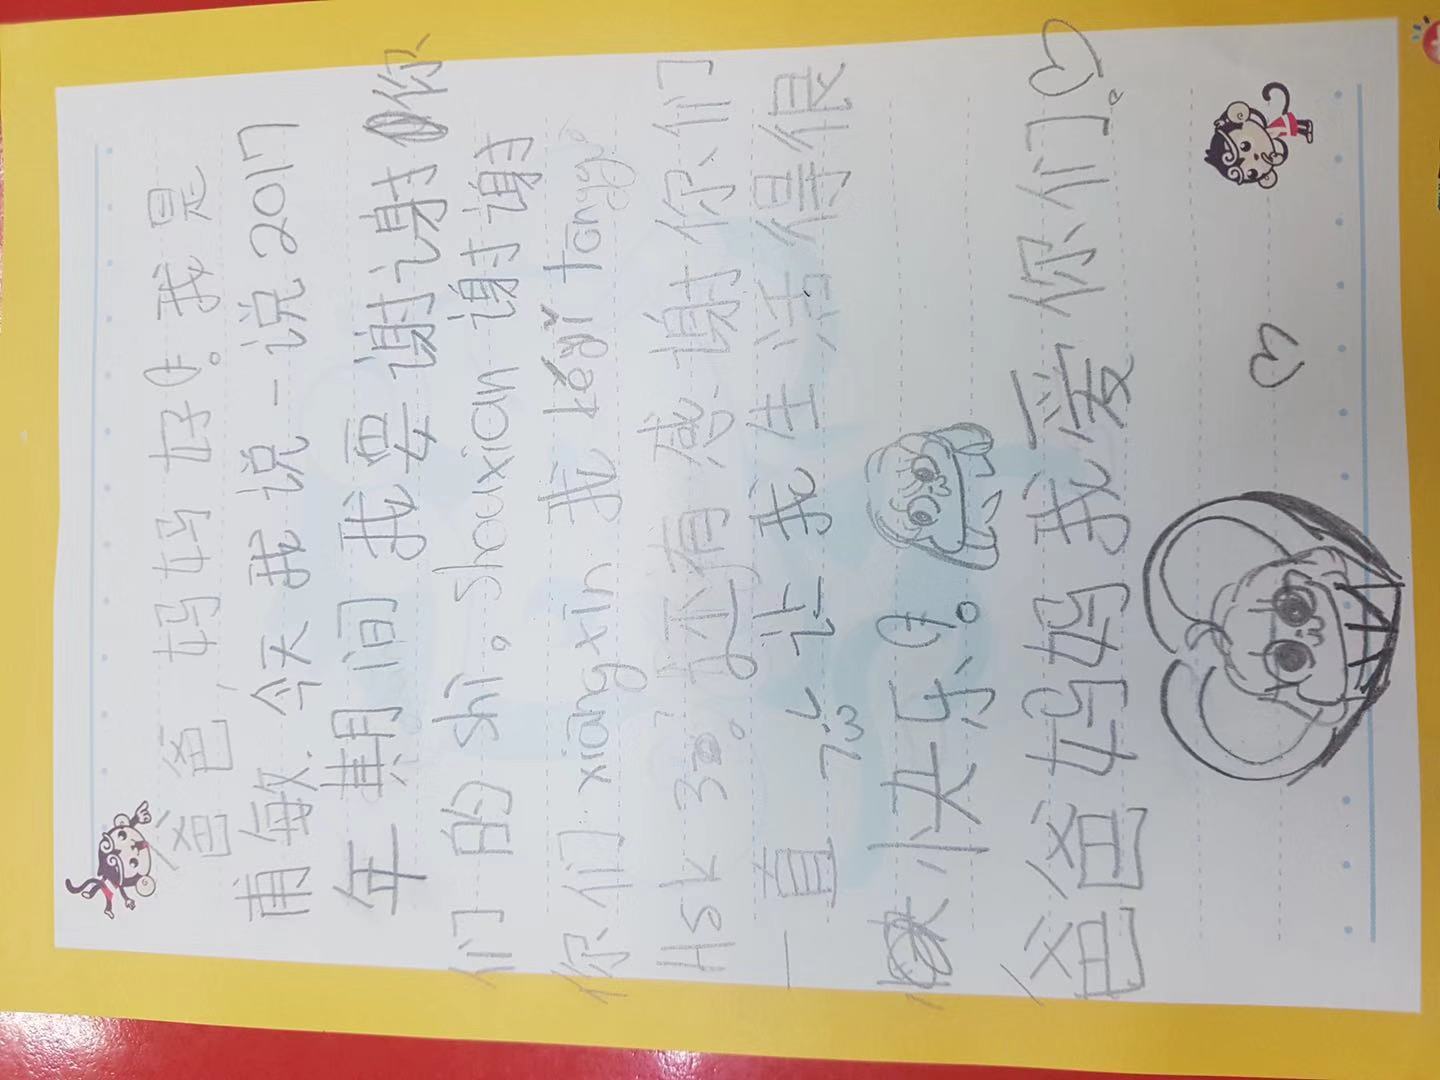 爸爸,妈妈好!我是
甫敏.今天我说一说2017
年期间我要谢谢你
们的 shì。shouxian 谢谢
你们 xiangxin 我 kěyǐ tōngguo
HSK 3。还有感谢你们
一直让我生活得很
快乐!。
爸爸妈妈我爱你们。